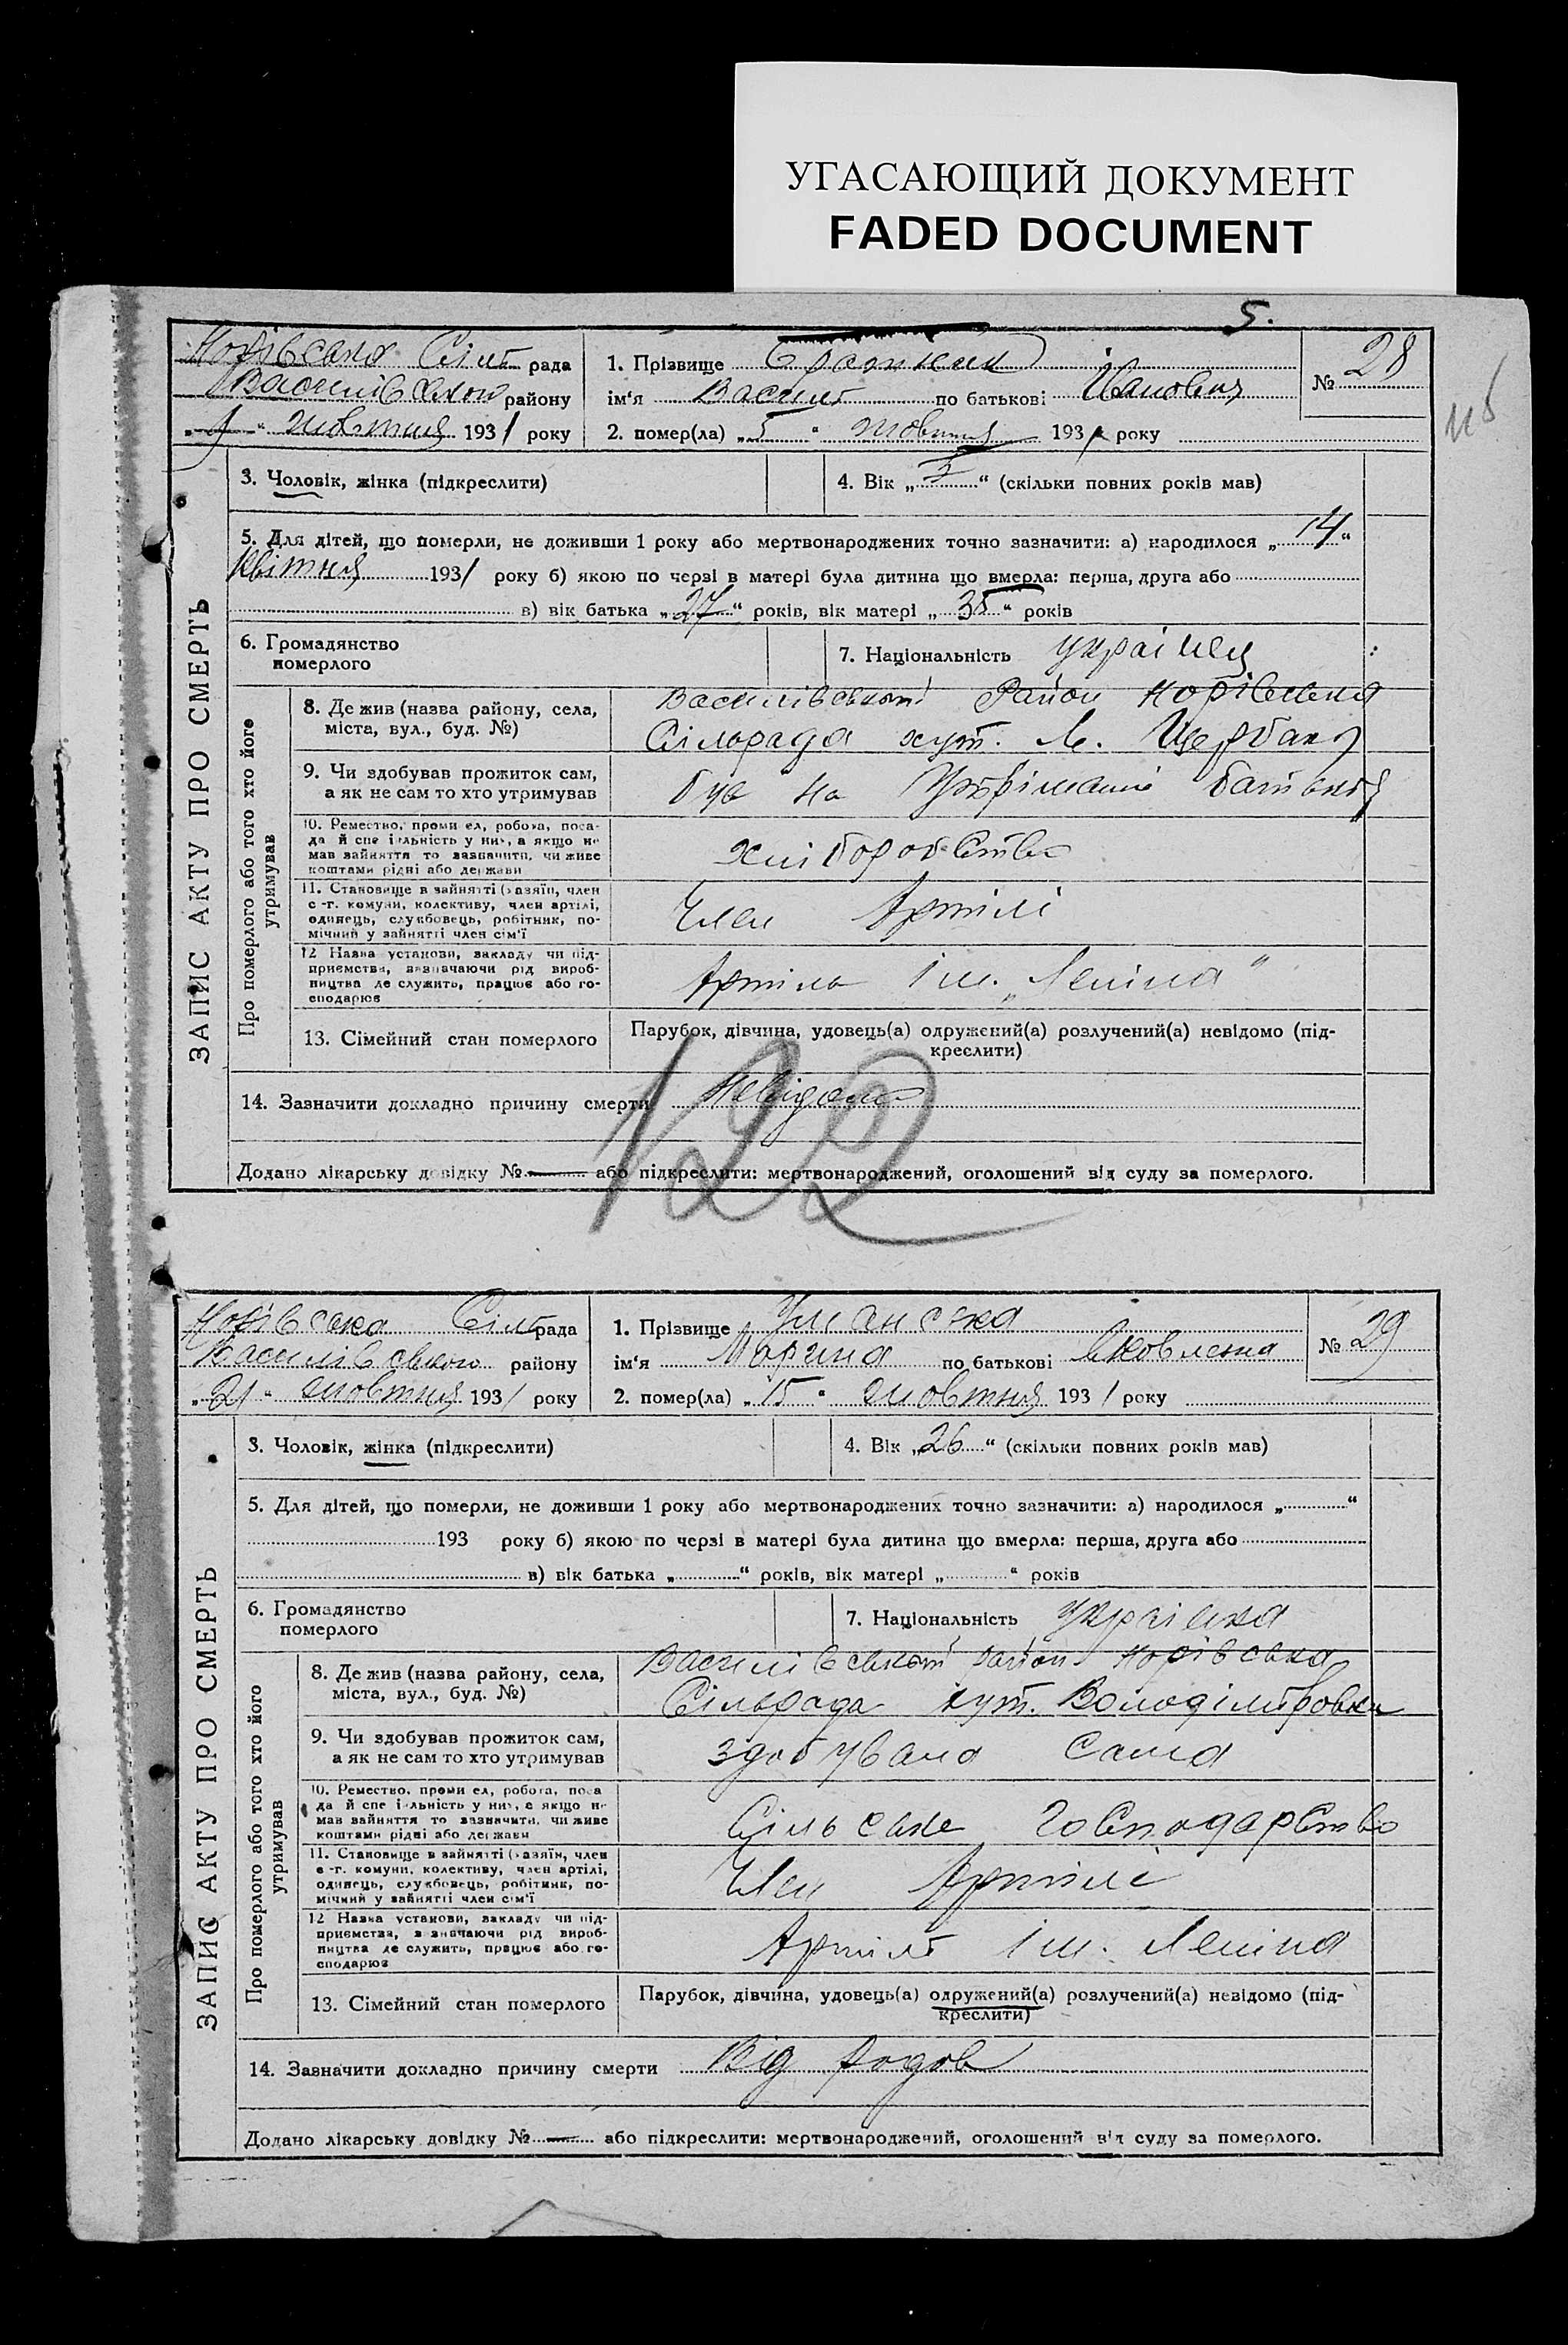 УГАСАЮЩИЙ ДОКУМЕНТ
FADED DOCUMENT
5.
115
Сільрада
Василівського району
„9“ жовтня 1931 року
1. Прізвище
ім'я Василь по батькові Іванович
№ 28
2. помер(ла) „5“ жовтня 1931 року
ЗАПИС АКТУ ПРО СМЕРТЬ
3. Чоловік, жінка (підкреслити)
4. Вік „“ (скільки повних років мав)
5. Для дітей, що померли, не доживши 1 року або мертвонароджених точно зазначити: а) народилося „14“
Квітня 1931 року б) якою по черзі в матері була дитина що вмерла: перша, друга або
в) вік батька „27“ років, вік матері „35“ років
6. Громадянство померлого
7. Національність українец
Про померлого або того хто його утримував
8. Де жив (назва району, села, міста, вул., буд. №)
Василівський Район
Сільрада хут. Щербак
9. Чи здобував прожиток сам, а як не сам то хто утримував
був на Утріманні батьков
10. Ремество, промисел, робота, посада й спеціальність у них, а якщо не мав зайняття то зазначити, чи живе коштами рідні або держави
хліборобство
11. Становище в зайнятті (хазяїн, член с.-г. комуни, колективу, член артілі, одинець, службовець, робітник, помічний у зайнятті член сім'ї
Член Артілі
12 Назва установи, закладу чи підприємства, зазначаючи рід виробництва де служить, працює або господарює
Артіль ім. „Леніна“
13. Сімейний стан померлого
Парубок, дівчина, удовець(а) одружений(а) розлучений(а) невідомо (підкреслити)
14. Зазначити докладно причину смерти Невідомо
122
Додано лікарську довідку № — або підкреслити: мертвонароджений, оголошений від суду за померлого.
Сільрада
Василівського району
„21“ жовтня 1931 року
1. Прізвище Уманська
ім'я Марина по батькові Яковлевна
№ 29
2. помер(ла) „15“ жовтня 1931 року
ЗАПИС АКТУ ПРО СМЕРТЬ
3. Чоловік, жінка (підкреслити)
4. Вік „26“ (скільки повних років мав)
5. Для дітей, що померли, не доживши 1 року або мертвонароджених точно зазначити: а) народилося „“
193 року б) якою по черзі в матері була дитина що вмерла: перша, друга або
в) вік батька „“ років, вік матері „“ років
6. Громадянство померлого
7. Національність Українка
Про померлого або того хто його утримував
8. Де жив (назва району, села, міста, вул., буд. №)
Василівський район
Сільрада хут. Володімировка
9. Чи здобував прожиток сам, а як не сам то хто утримував
здобувала сама
10. Ремество, промисел, робота, посада й спеціальність у них, а якщо не мав зайняття то зазначити, чи живе коштами рідні або держави
Сільське Господарство
11. Становище в зайнятті (хазяїн, член с.-г. комуни, колективу, член артілі, одинець, службовець, робітник, помічний у зайнятті член сім'ї
Член Артілі
12 Назва установи, закладу чи підприємства, зазначаючи рід виробництва де служить, працює або господарює
Артіль ім. Леніна
13. Сімейний стан померлого
Парубок, дівчина, удовець(а) одружений(а) розлучений(а) невідомо (підкреслити)
14. Зазначити докладно причину смерти Від родов
Додано лікарську довідку № — або підкреслити: мертвонароджений, оголошений від суду за померлого.